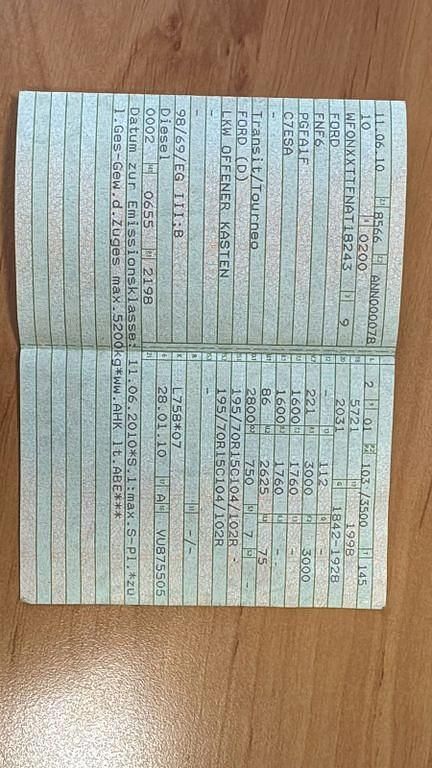 11.06.10 8566 ANN00007B
10 0200
WFONXXTTFNAT18243 9
FORD
FNF6
PGFA1F
C7ESA
-
Transit/Tourneo
FORD (D)
LKW OFFENER KASTEN
-
-
98/69/EG III;B
Diesel
0002 0655 2198
Datum zur Emissionsklasse: 11.06.2010*S.1:max.S-Pl.*zu
l.Ges-Gew.d.Zuges max.5200kg*ww.AHK lt.ABE***
2 01 103 /3500 145
5721 1998
2031 1842-1928
- 112 -
221 3000 3000
1600 1760 -
1600 1760 -
86 2625 75
2800 750 7 -
195/70R15C104/102R -
195/70R15C104/102R
-
L758*07 -/-
28.01.10 A VU875505